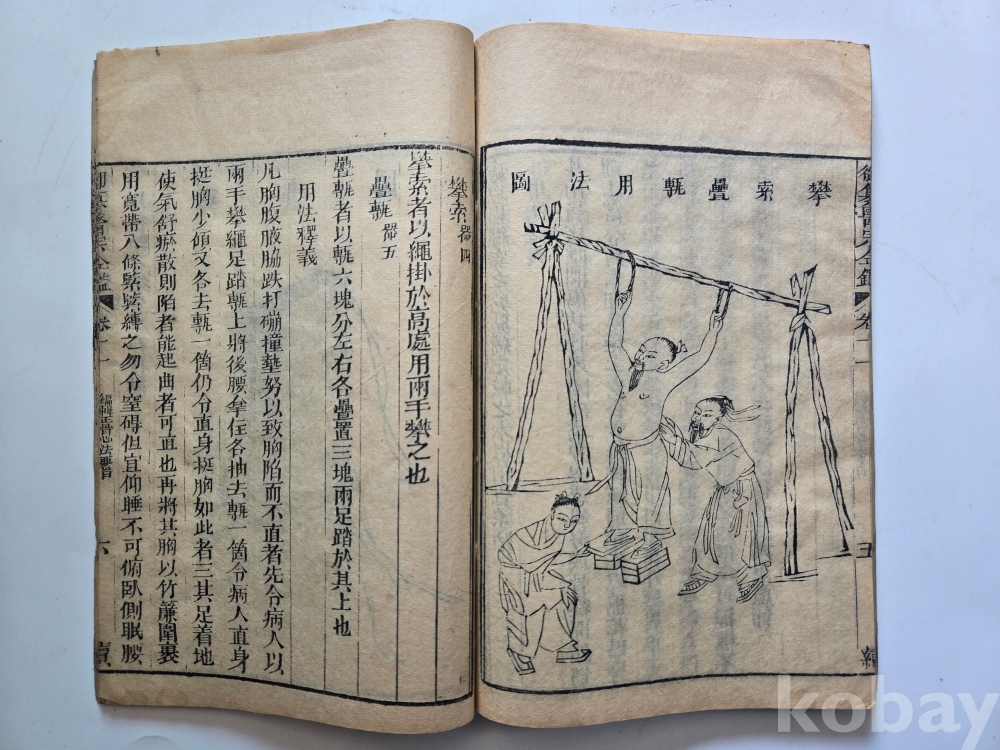 御纂醫宗金鑑 卷十一 五
攀索疊甎用法圖
攀索 器四
攀索者以繩掛於高處用兩手攀之也
疊甎 器五
疊甎者以甎六塊分左右各疊置三塊兩足踏於其上也
用法釋義
凡胸腹腋脇跌打磞撞墊努以致胸陷而不直者先令病人以
兩手攀繩足踏甎上將後腰拿住各抽去甎一箇令病人直身
挺胸少頃又各去甎一箇仍令直身挺胸如此者三其足着地
使氣舒瘀散則陷者能起曲者可直也再將其胸以竹簾圍裹
用寬帶八條緊緊縛之勿令窒礙但宜仰睡不可俯臥側眠腰
御纂醫宗金鑑 卷十一 編輯正骨心法要旨 六
kobay